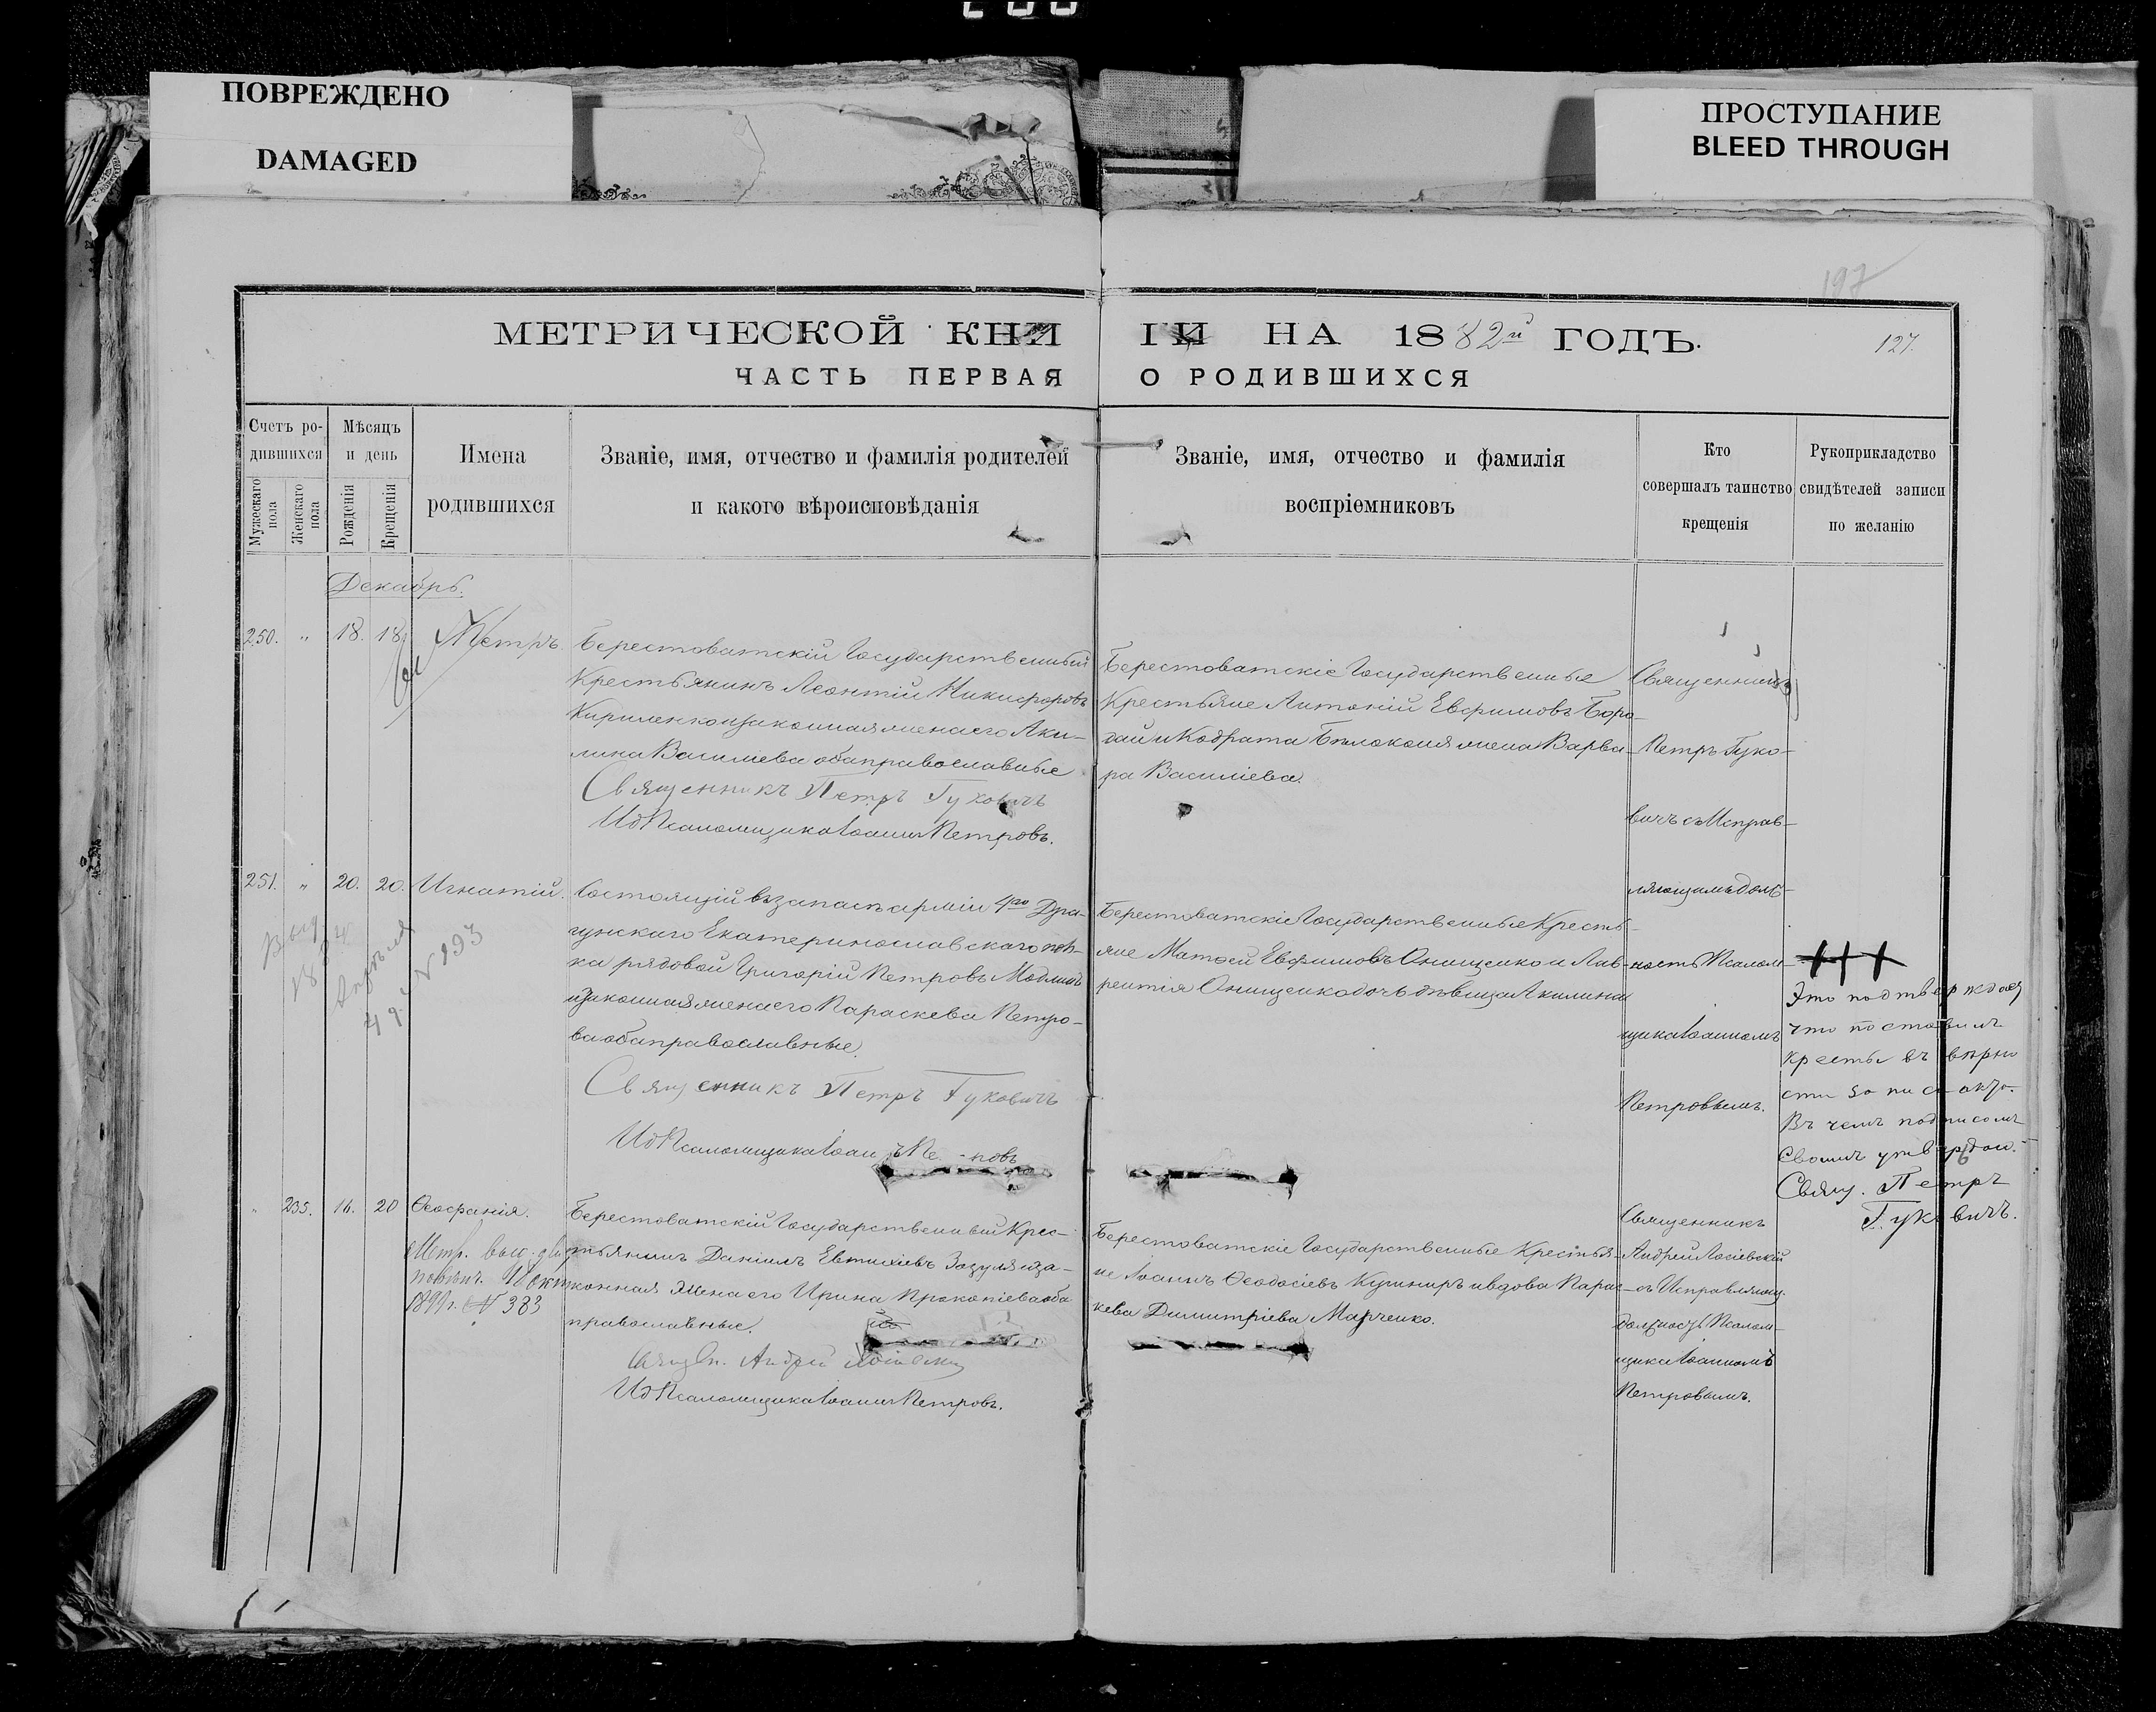 ПОВРЕЖДЕНО
DAMAGED
ПРОСТУПАНИЕ
BLEED THROUGH
197
МЕТРИЧЕСКОЙ КНИ ГИ НА 1882й ГОДЪ.
127.
ЧАСТЬ ПЕРВАЯ О РОДИВШИХСЯ
Счетъ ро-
дившихся
Мужескаго пола
Женскаго пола
Мѣсяцъ
и день
Рожденія
Крещенія
Имена
родившихся
Званіе, имя, отчество и фамилія родителей
и какого вѣроисповѣданія
Званіе, имя, отчество и фамилія
воспріемниковъ
Кто
совершалъ таинство
крещенія
Рукоприкладство
свидѣтелей записи
по желанію
Декабрь.
250. " 18. 18. Петръ
Берестоватскій Государственный
Крестьянинъ Леонтій Никифоровъ
Кириленко и законная жена его Аки-
лина Василиева оба православные
Священникъ Петръ Гуковичъ
Ид Псаломщика Іоаннъ Петровъ.
Берестоватскіе Государственные
Крестьяне Антоній Евфимовъ Боро-
дай и Кодрата Бѣлоконя жена Варва-
ра Василіева.
Священникъ
Петръ Гуко-
вичъ съ Исправ-
ляющимъ долж-
ность Псалом-
щика Іоанномъ
Петровымъ.
251. " 20. 20. Игнатій.
Состоящій въ запасѣ арміи 4го Дра-
гунскаго Екатеринославскаго пол-
ка рядовой Григорій Петровъ
и законная жена его Параскева Петро-
ва оба православные.
Священникъ Петръ Гуковичъ
Ид Псаломщика Іоан ъ Пе новъ
N 193
Берестоватскіе Государственные Кресть-
яне Матѳей Евфимовъ Онищенко и Лав-
рентія Онищенко дочь дѣвица Акилина
+++
Это подтверждаю
что поставилъ
кресты въ вѣрно
сти записи
Въ чемъ подписомъ
своимъ утвердил.
Свящ. Петръ
Гуковичъ.
" 235. 16. 20 Ѳеофанія.
Метр. выд.
1899 г. N 383
Берестоватскій Государственный Крес-
тьянинъ Даніилъ Евтихіевъ Зозуля и за-
конная жена его Ирина Прокопіева оба
православные.
Андрей
Ид Псаломщика Іоаннъ Петровъ.
Берестоватскіе Государственные Крестья-
не Іоаннъ Ѳеодосіевъ Кушниръ и вдова Парас-
кева Димитріева Марченко.
Священникъ
Андрей Лосіевскій
съ Исправляющ.
должность Псалом-
щика Іоанномъ
Петровымъ.